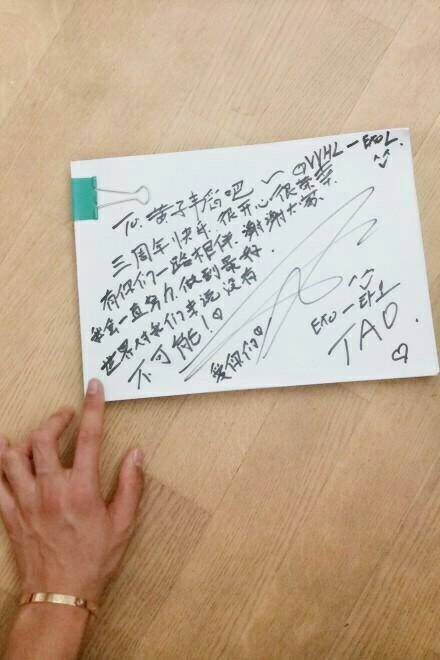 To. 黄子韬吧 ~ ♡WHL-EXOL
^^
三周年快乐. 很开心. 很荣幸.
有你们一路相伴. 谢谢大家
我会一直努力. 做到最好.
世界对我们来说没有
不可能! ♡
爱你们♡
^^
EXO-EXOL
TAO. ♡